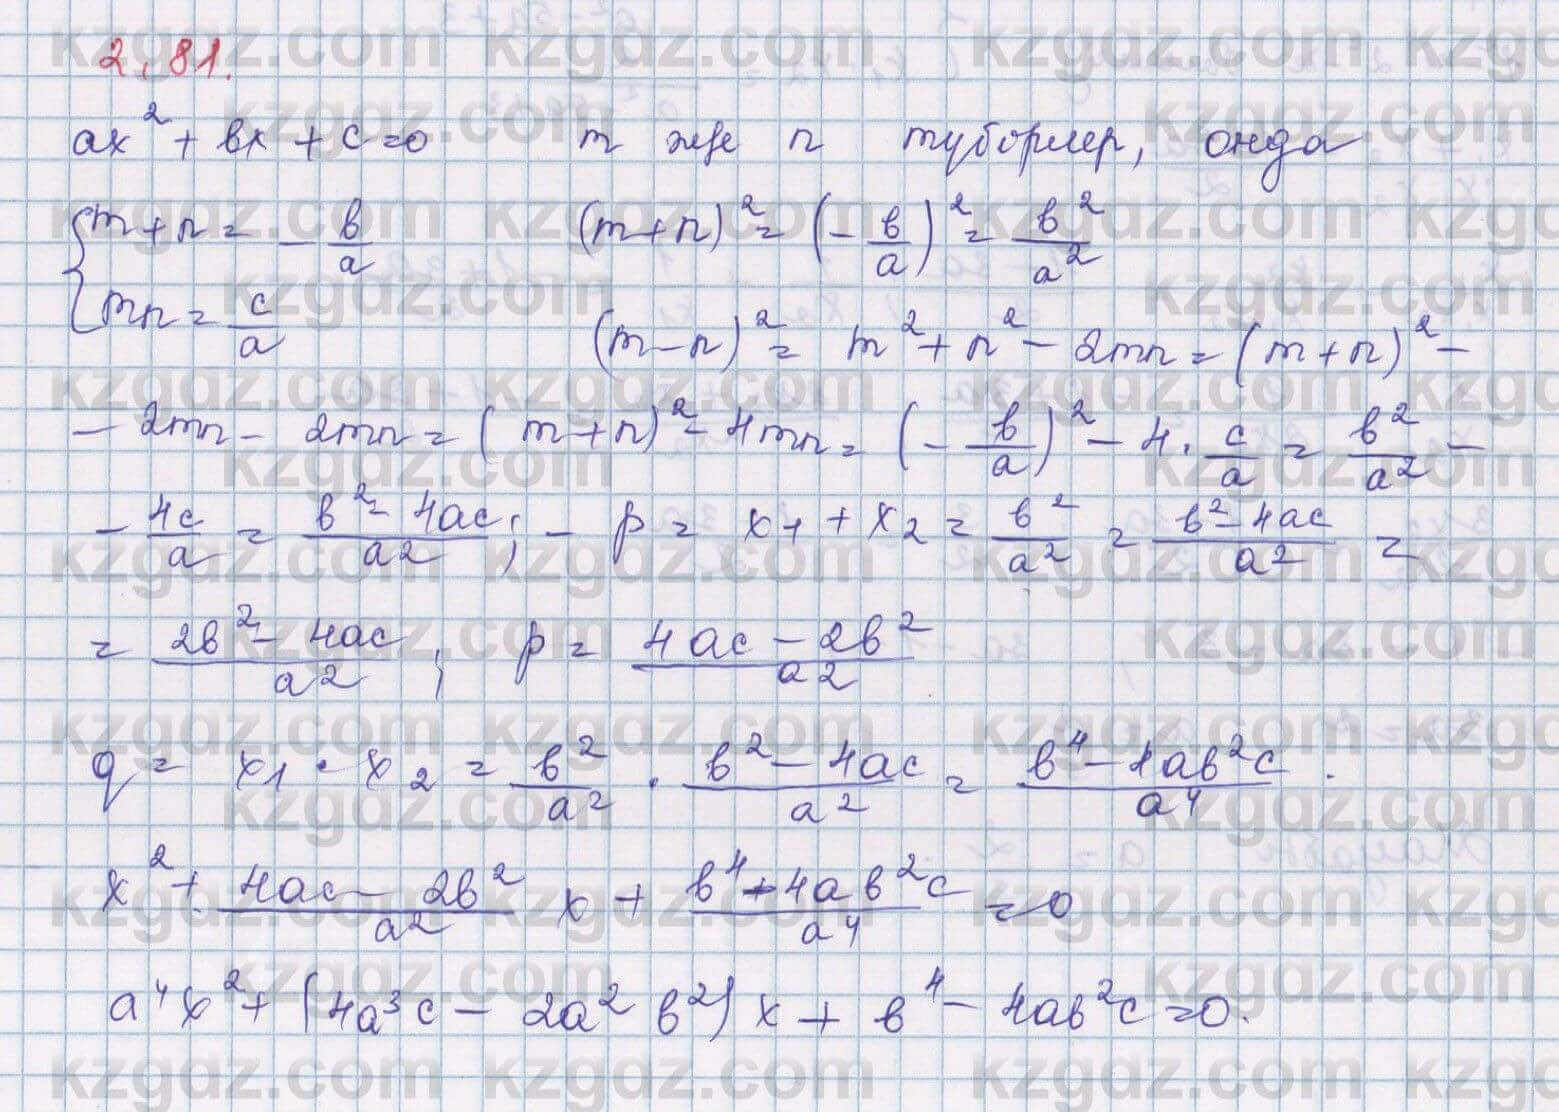 2.81.
ax² + bx + c = 0 m және n түбірлер, онда
{ m+n = - b/a (m+n)² = (- b/a)² = b²/a²
mn = c/a (m-n)² = m² + n² - 2mn = (m+n)² -
- 2mn - 2mn = (m+n)² - 4mn = (- b/a)² - 4 · c/a = b²/a² -
- 4c/a = b² - 4ac/a² ; - p = x₁ + x₂ = b²/a² = b² - 4ac/a² =
= 2b² - 4ac/a² ; p = 4ac - 2b²/a²
q = x₁ · x₂ = b²/a² · b² - 4ac/a² = b⁴ - 4ab²c/a⁴ .
x² + 4ac - 2b²/a² x + b⁴ - 4ab²c/a⁴ = 0
a⁴x² + (4a³c - 2a²b²)x + b⁴ - 4ab²c = 0.
kzgdz.com